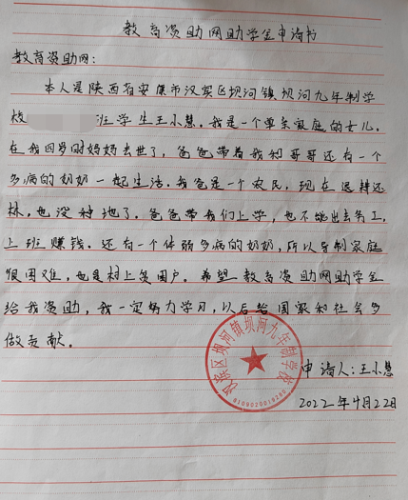 教育资助网助学金申请书
教育资助网:
本人是陕西省安康市汉滨区坝河镇坝河九年制学
校 班学生王小慧。我是一个单亲家庭的女儿。
在我四岁时妈妈去世了。爸爸带着我和哥哥还有一个
多病的奶奶一起生活。我爸是一个农民,现在退耕还
林,也没种地了。爸爸带我们上学,也不能出去务工,
上班赚钱。还有一个体弱多病的奶奶,所以导制家庭
很困难,也是村上贫困户。希望教育资助网助学金
给我资助,我一定努力学习,以后给国家和社会多
做贡献。
汉滨区坝河镇坝河九年制学校
申请人:王小慧
2022年4月22日